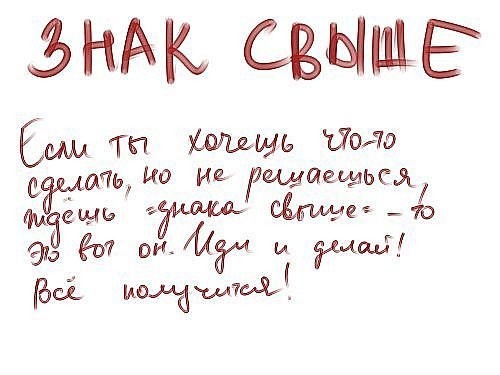 ЗНАК СВЫШЕ
Если ты хочешь что-то
сделать, но не решаешься,
ждёшь "знака свыше" - то
Это вот он. Иди и делай!
Всё получится!